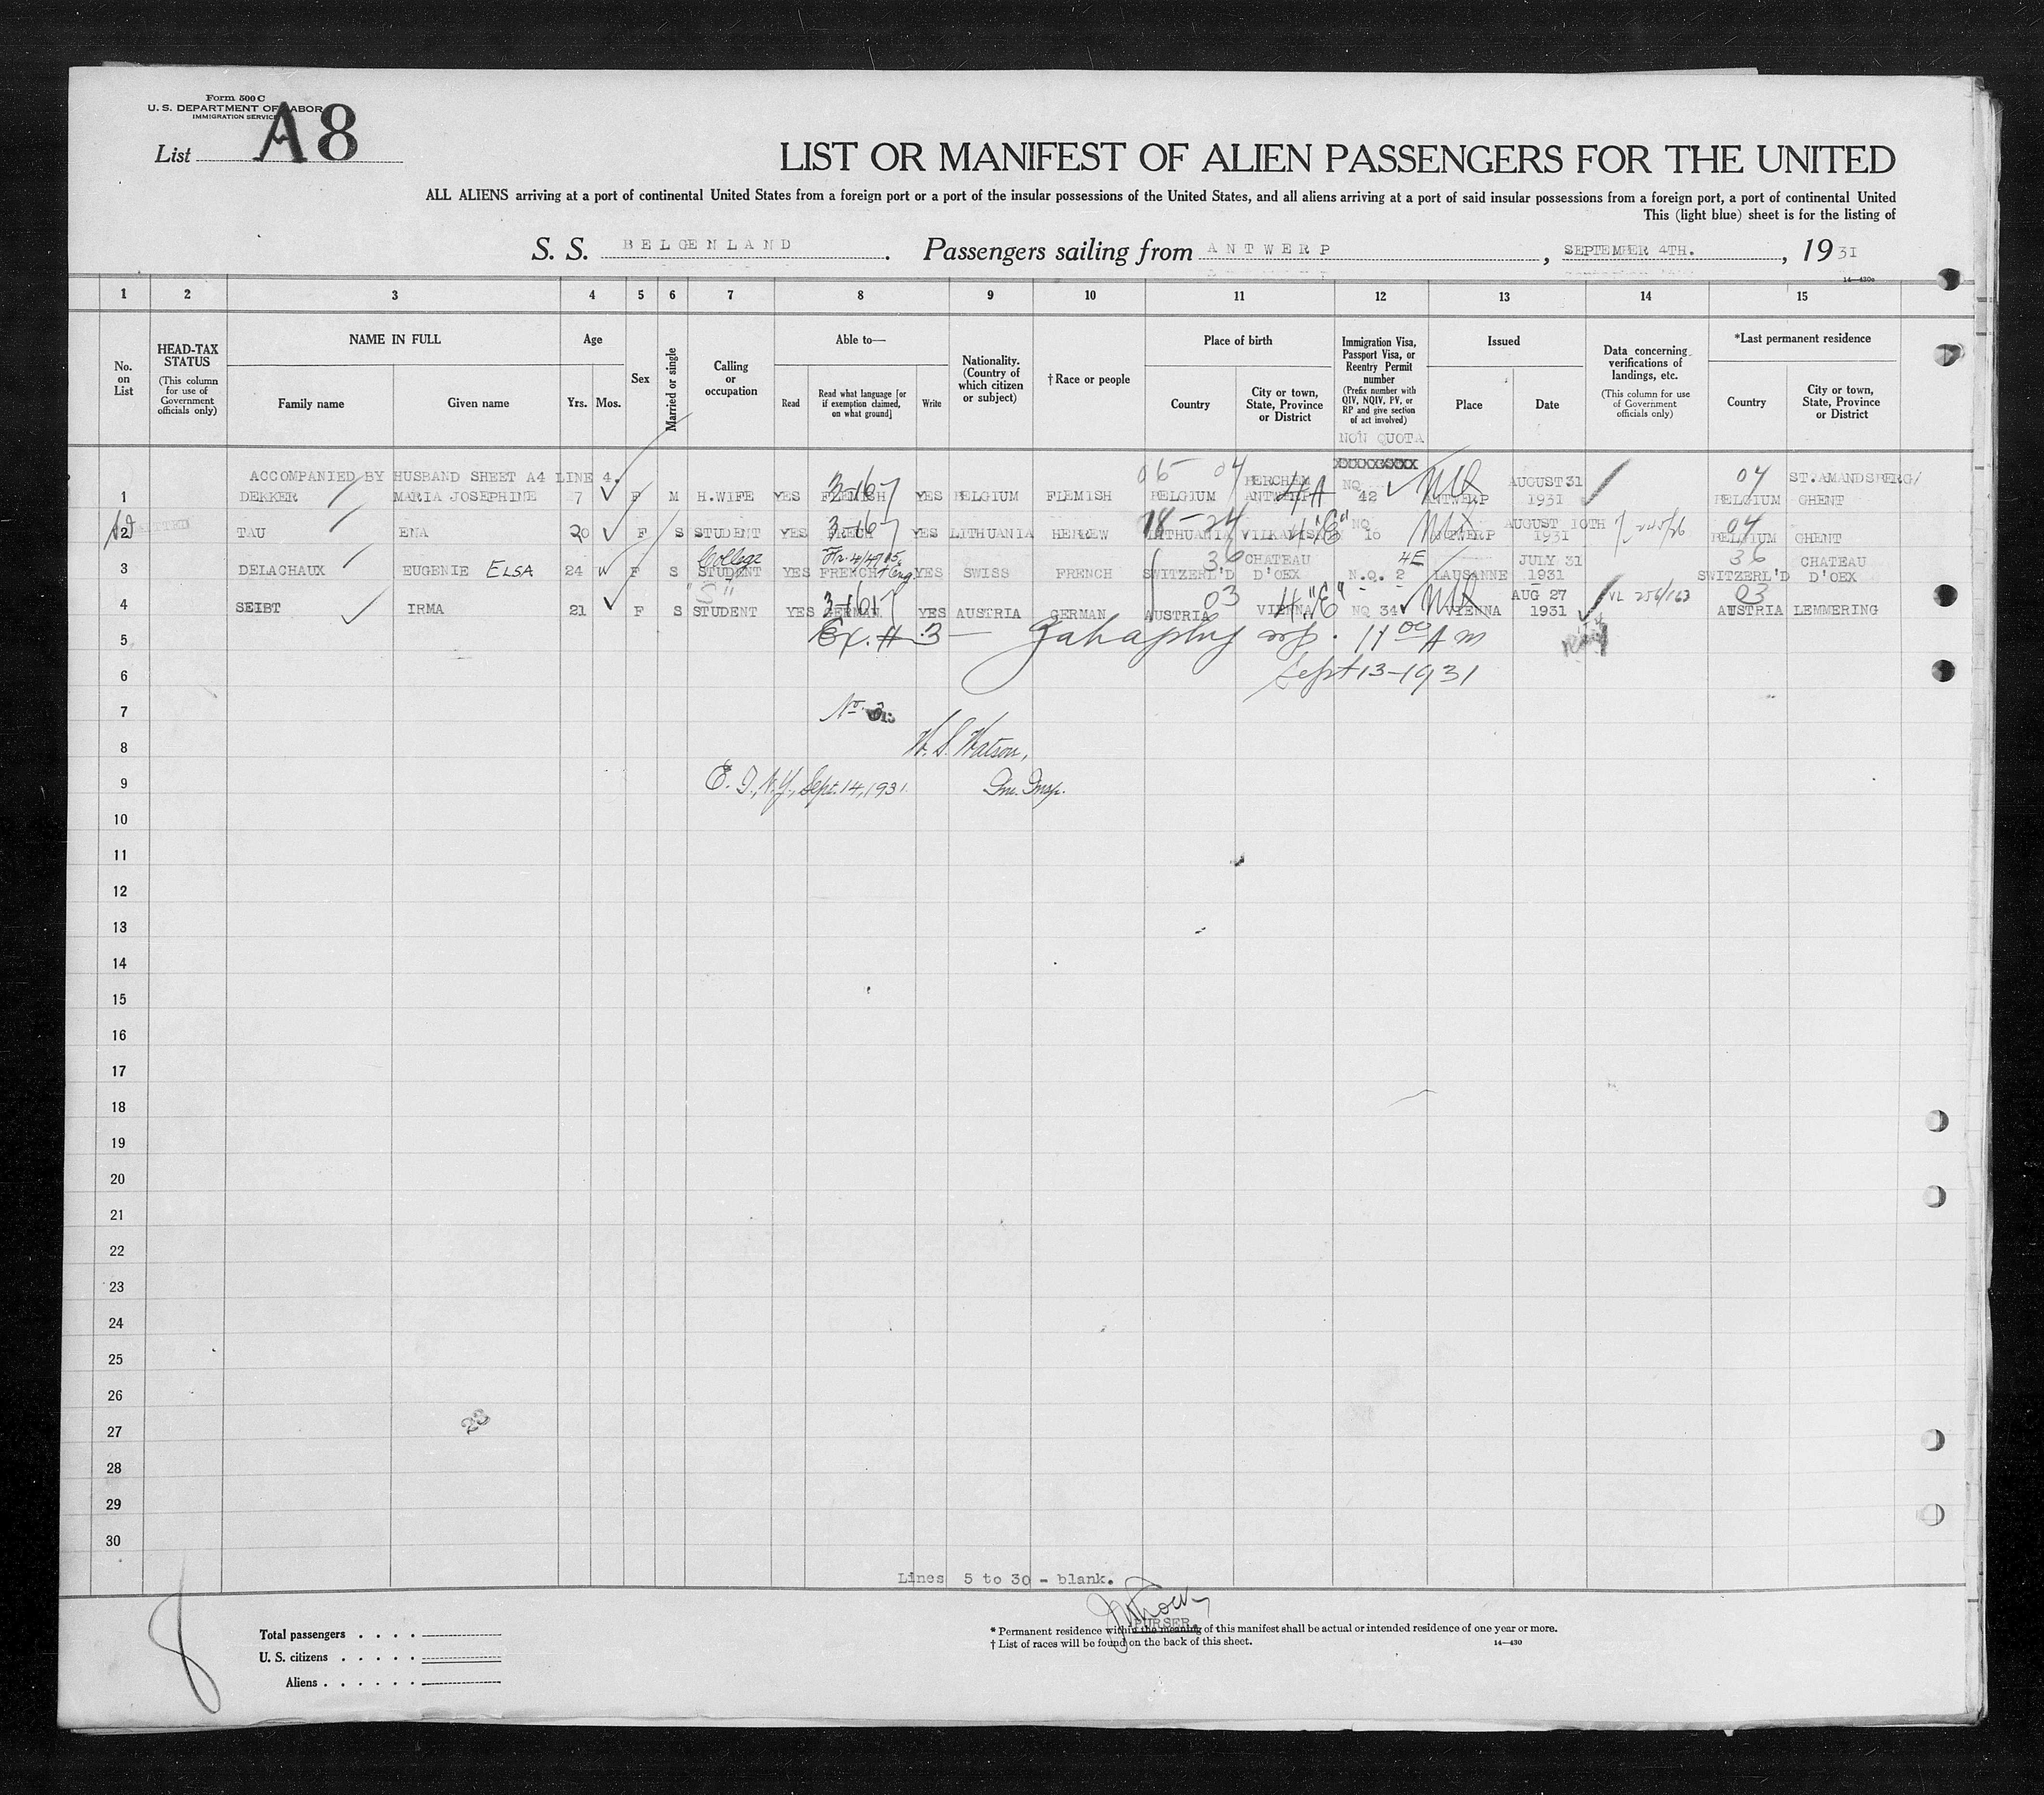 Form 500 C
U. S. DEPARTMENT OF LABOR
IMMIGRATION SERVICE
List A8
LIST OR MANIFEST OF ALIEN PASSENGERS FOR THE UNITED
ALL ALIENS arriving at a port of continental United States from a foreign port or a port of the insular possessions of the United States, and all aliens arriving at a port of said insular possessions from a foreign port, a port of continental United
This (light blue) sheet is for the listing of
S. S. BELGENLAND. Passengers sailing from ANTWERP, SEPTEMBER 4TH., 1931
14—430a
1 2 3 4 5 6 7 8 9 10 11 12 13 14 15
No. on List
HEAD-TAX STATUS
(This column for use of Government officials only)
NAME IN FULL
Family name Given name
Age
Yrs. Mos.
Sex
Married or single
Calling or occupation
Able to—
Read Read what language [or if exemption claimed, on what ground] Write
Nationality. (Country of which citizen or subject)
† Race or people
Place of birth
Country City or town, State, Province or District
Immigration Visa, Passport Visa, or Reentry Permit number
(Prefix number with QIV, NQIV, PV, or RP and give section of act involved)
NON QUOTA
Issued
Place Date
Data concerning verifications of landings, etc.
(This column for use of Government officials only)
*Last permanent residence
Country City or town, State, Province or District
ACCOMPANIED BY HUSBAND SHEET A4 LINE 4. 3-167 05 04 BERCHEM NQ AUGUST 31 04 ST.AMANDSBERG/
1 DEKKER MARIA JOSEPHINE 7 F M H.WIFE YES FLEMISH YES BELGIUM FLEMISH BELGIUM ANTWERP 4A 42 ANTWERP 1931 BELGIUM GHENT
3-167 NQ AUGUST 10TH 04
2 TAU ENA 20 F S STUDENT YES FRECH YES LITHUANIA HEBREW LITHUANIA 4"E" 16 ANTWERP 1931 BELGIUM GHENT
College 36 CHATEAU 4E JULY 31 36 CHATEAU
3 DELACHAUX EUGENIE ELSA 24 F S STUDENT YES FRENCH + Eng YES SWISS FRENCH SWITZERL'D D'OEX N.Q. 2 LAUSANNE 1931 SWITZERL'D D'OEX
"S" 3-167 03 4"E" AUG 27 VL 256/163 03
4 SEIBT IRMA 21 F S STUDENT YES GERMAN YES AUSTRIA GERMAN AUSTRIA VIENNA NQ 34 VIENNA 1931 AUSTRIA LEMMERING
5 Ex. # 3 — 11 00 AM
6 Sept 13-1931
7 No.
8 W. S. Watson,
9 E. I., N.Y., Sept. 14, 1931. Im. Insp.
10
11
12
13
14
15
16
17
18
19
20
21
22
23
24
25
26
27 23
28
29
30
Lines 5 to 30 - blank.
8
PURSER
Total passengers . . . .
U. S. citizens . . . . .
Aliens . . . . . .
* Permanent residence within the meaning of this manifest shall be actual or intended residence of one year or more.
† List of races will be found on the back of this sheet.
14—430